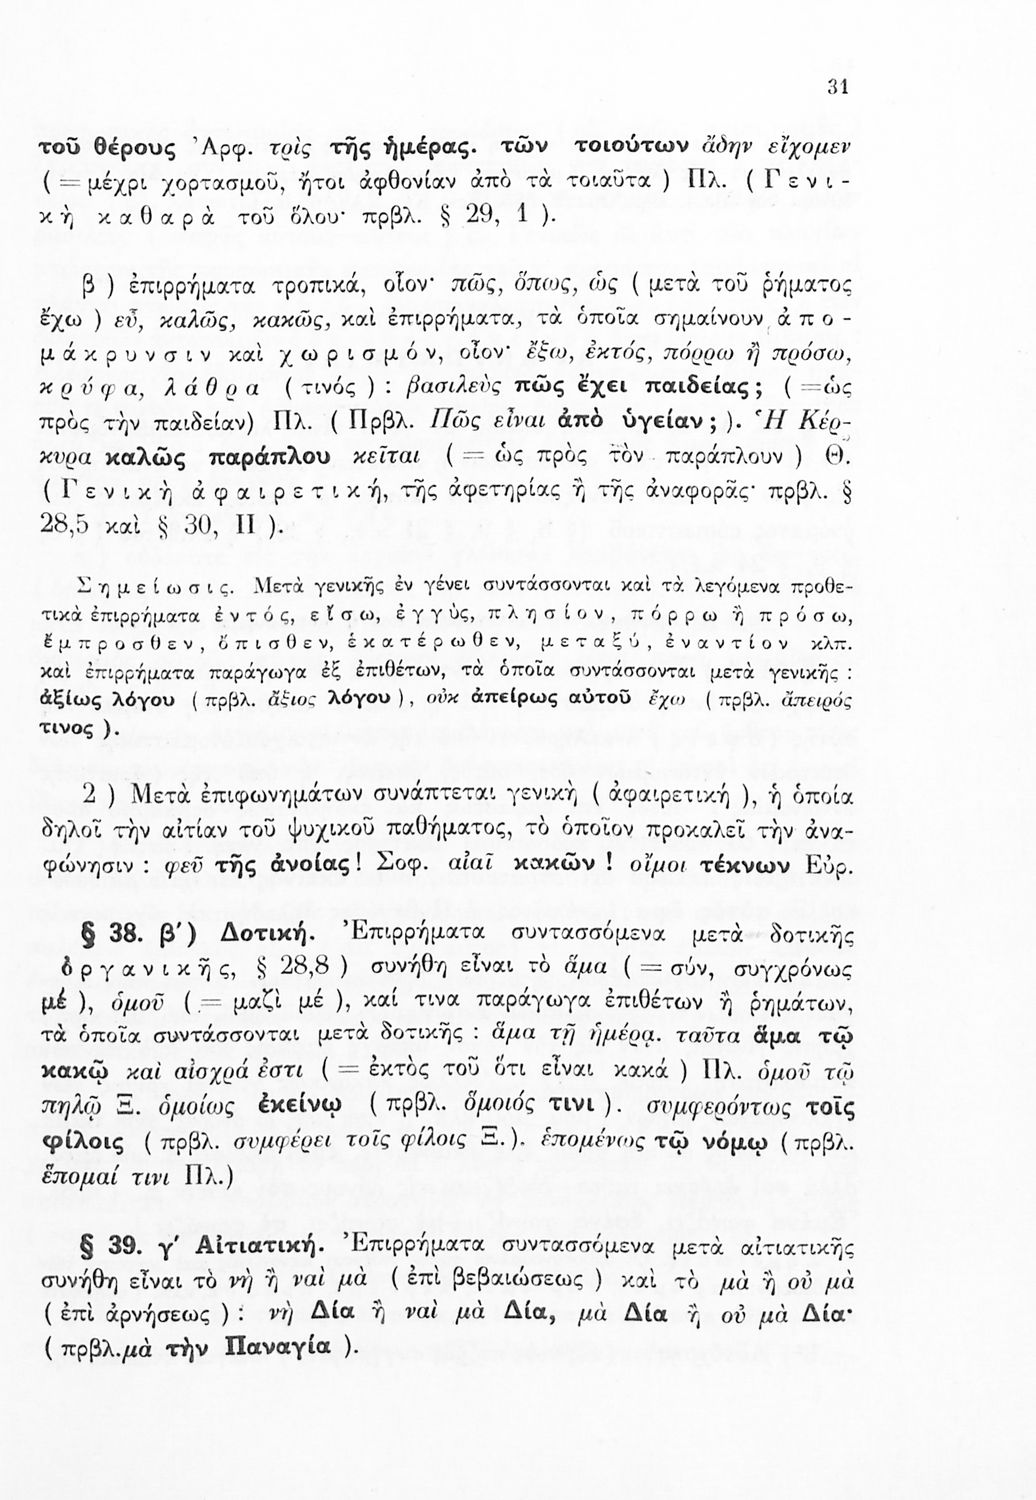 31
τοῦ θέρους Ἀρφ. τρὶς τῆς ἡμέρας. τῶν τοιούτων ἄδην εἴχομεν
( = μέχρι χορτασμοῦ, ἤτοι ἀφθονίαν ἀπὸ τὰ τοιαῦτα ) Πλ. ( Γ ε ν ι -
κ ὴ κ α θ α ρ ὰ τοῦ ὅλου· πρβλ. § 29, 1 ).
β ) ἐπιρρήματα τροπικά, οἷον· πῶς, ὅπως, ὡς ( μετὰ τοῦ ῥήματος
ἔχω ) εὖ, καλῶς, κακῶς, καὶ ἐπιρρήματα, τὰ ὁποῖα σημαίνουν ἀ π ο -
μ ά κ ρ υ ν σ ι ν καὶ χ ω ρ ι σ μ ό ν, οἷον· ἔξω, ἐκτός, πόρρω ἢ πρόσω,
κ ρ ύ φ α, λ ά θ ρ α ( τινός ) : βασιλεὺς πῶς ἔχει παιδείας ; ( =ὡς
πρὸς τὴν παιδείαν) Πλ. ( Πρβλ. Πῶς εἶναι ἀπὸ ὑγείαν ; ). Ἡ Κέρ-
κυρα καλῶς παράπλου κεῖται ( = ὡς πρὸς τὸν παράπλουν ) Θ.
( Γ ε ν ι κ ὴ ἀ φ α ι ρ ε τ ι κ ή, τῆς ἀφετηρίας ἢ τῆς ἀναφορᾶς· πρβλ. §
28,5 καὶ § 30, II ).
Σ η μ ε ί ω σ ι ς. Μετὰ γενικῆς ἐν γένει συντάσσονται καὶ τὰ λεγόμενα προθε-
τικὰ ἐπιρρήματα ἐ ν τ ό ς, ε ἴ σ ω, ἐ γ γ ύ ς, π λ η σ ί ο ν , π ό ρ ρ ω ἢ π ρ ό σ ω,
ἔ μ π ρ ο σ θ ε ν , ὄ π ι σ θ ε ν, ἑ κ α τ έ ρ ω θ ε ν, μ ε τ α ξ ύ , ἐ ν α ν τ ί ο ν κλπ.
καὶ ἐπιρρήματα παράγωγα ἐξ ἐπιθέτων, τὰ ὁποῖα συντάσσονται μετὰ γενικῆς :
ἀξίως λόγου ( πρβλ. ἄξιος λόγου ), οὐκ ἀπείρως αὐτοῦ ἔχω ( πρβλ. ἄπειρός
τινος ).
2 ) Μετὰ ἐπιφωνημάτων συνάπτεται γενικὴ ( ἀφαιρετική ), ἡ ὁποία
δηλοῖ τὴν αἰτίαν τοῦ ψυχικοῦ παθήματος, τὸ ὁποῖον προκαλεῖ τὴν ἀνα-
φώνησιν : φεῦ τῆς ἀνοίας ! Σοφ. αἰαῖ κακῶν ! οἴμοι τέκνων Εὐρ.
§ 38. β') Δοτική. Ἐπιρρήματα συντασσόμενα μετὰ δοτικῆς
ὀ ρ γ α ν ι κ ῆ ς, § 28,8 ) συνήθη εἶναι τὸ ἅμα ( = σύν, συγχρόνως
μέ ), ὁμοῦ ( = μαζὶ μέ ), καί τινα παράγωγα ἐπιθέτων ἢ ῥημάτων,
τὰ ὁποῖα συντάσσονται μετὰ δοτικῆς : ἅμα τῇ ἡμέρᾳ. ταῦτα ἅμα τῷ
κακῷ καὶ αἰσχρά ἐστι ( = ἐκτὸς τοῦ ὅτι εἶναι κακά ) Πλ. ὁμοῦ τῷ
πηλῷ Ξ. ὁμοίως ἐκείνῳ ( πρβλ. ὅμοιός τινι ). συμφερόντως τοῖς
φίλοις ( πρβλ. συμφέρει τοῖς φίλοις Ξ.). ἑπομένως τῷ νόμῳ ( πρβλ.
ἕπομαί τινι Πλ.)
§ 39. γ' Αἰτιατική. Ἐπιρρήματα συντασσόμενα μετὰ αἰτιατικῆς
συνήθη εἶναι τὸ νὴ ἢ ναὶ μὰ ( ἐπὶ βεβαιώσεως ) καὶ τὸ μὰ ἢ οὐ μὰ
( ἐπὶ ἀρνήσεως ) : νὴ Δία ἢ ναὶ μὰ Δία, μὰ Δία ἢ οὐ μὰ Δία·
( πρβλ.μὰ τὴν Παναγία ).